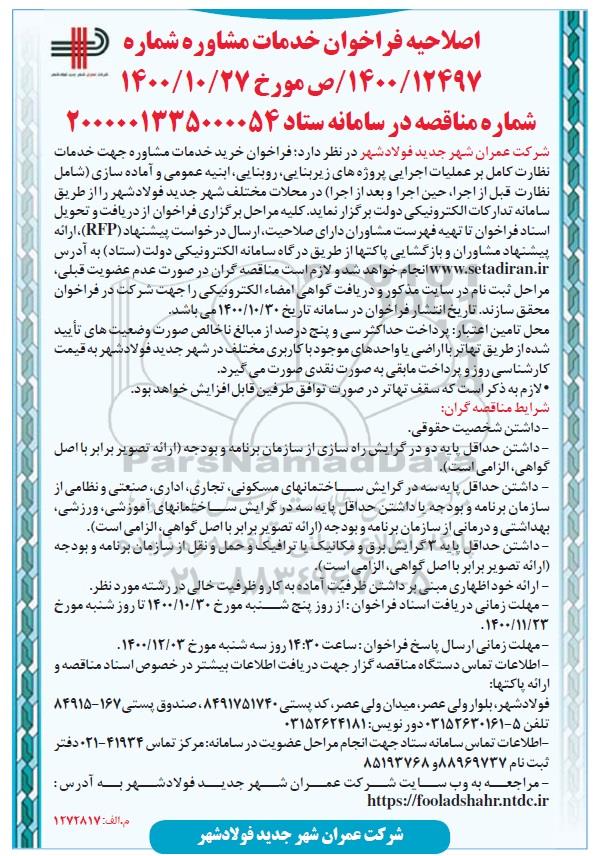 شرکت عمران شهر جدید فولادشهر
اصلاحیه فراخوان خدمات مشاوره شماره
۱۴۰۰/۱۲۴۹۷/ص مورخ ۱۴۰۰/۱۰/۲۷
شماره مناقصه در سامانه ستاد ۲۰۰۰۰۰۱۳۳۵۰۰۰۰۵۴
شرکت عمران شهر جدید فولادشهر در نظر دارد؛ فراخوان خرید خدمات مشاوره جهت خدمات
نظارت کامل بر عملیات اجرایی پروژه های زیربنایی، روبنایی، ابنیه عمومی و آماده سازی (شامل
نظارت قبل از اجرا، حین اجرا و بعد از اجرا) در محلات مختلف شهر جدید فولادشهر را از طریق
سامانه تدارکات الکترونیکی دولت برگزار نماید. کلیه مراحل برگزاری فراخوان از دریافت و تحویل
اسناد فراخوان تا تهیه فهرست مشاوران دارای صلاحیت، ارسال درخواست پیشنهاد (RFP)، ارائه
پیشنهاد مشاوران و بازگشایی پاکتها از طریق درگاه سامانه الکترونیکی دولت (ستاد) به آدرس
www.setadiran.ir انجام خواهد شد و لازم است مناقصه گران در صورت عدم عضویت قبلی،
مراحل ثبت نام در سایت مذکور و دریافت گواهی امضاء الکترونیکی را جهت شرکت در فراخوان
محقق سازند. تاریخ انتشار فراخوان در سامانه تاریخ ۱۴۰۰/۱۰/۳۰ می باشد.
محل تامین اعتبار: پرداخت حداکثر سی و پنج درصد از مبالغ ناخالص صورت وضعیت های تأیید
شده از طریق تهاتر با اراضی یا واحدهای موجود با کاربری مختلف در شهر جدید فولادشهر به قیمت
کارشناسی روز و پرداخت مابقی به صورت نقدی صورت می گیرد.
•لازم به ذکر است که سقف تهاتر در صورت توافق طرفین قابل افزایش خواهد بود.
شرایط مناقصه گران:
-داشتن شخصیت حقوقی.
- داشتن حداقل پایه دو در گرایش راه سازی از سازمان برنامه و بودجه (ارائه تصویر برابر با اصل
گواهی، الزامی است).
- داشتن حداقل پایه سه در گرایش ساختمانهای مسکونی، تجاری، اداری، صنعتی و نظامی از
سازمان برنامه و بودجه یا داشتن حداقل پایه سه در گرایش ساختمانهای آموزشی، ورزشی،
بهداشتی و درمانی از سازمان برنامه و بودجه (ارائه تصویر برابر با اصل گواهی، الزامی است).
- داشتن حداقل پایه ۳ گرایش برق و مکانیک یا ترافیک و حمل و نقل از سازمان برنامه و بودجه
(ارائه تصویر برابر با اصل گواهی، الزامی است).
- ارائه خود اظهاری مبنی بر داشتن ظرفیت آماده به کار و ظرفیت خالی در رشته مورد نظر.
- مهلت زمانی دریافت اسناد فراخوان : از روز پنج شنبه مورخ ۱۴۰۰/۱۰/۳۰ تا روز شنبه مورخ
۱۴۰۰/۱۱/۲۳.
-مهلت زمانی ارسال پاسخ فراخوان : ساعت ۱۴:۳۰ روز سه شنبه مورخ ۱۴۰۰/۱۲/۰۳.
-اطلاعات تماس دستگاه مناقصه گزار جهت دریافت اطلاعات بیشتر در خصوص اسناد مناقصه و
ارائه پاکتها:
فولادشهر، بلوار ولی عصر، میدان ولی عصر، کد پستی ۸۴۹۱۷۵۱۷۴۰ ، صندوق پستی ۱۶۷-۸۴۹۱۵
تلفن ۵-۰۳۱۵۲۶۳۰۱۶۱ دور نویس: ۰۳۱۵۲۶۲۴۱۸۱
-اطلاعات تماس سامانه ستاد جهت انجام مراحل عضویت در سامانه: مرکز تماس ۴۱۹۳۴-۰۲۱ دفتر
ثبت نام ۸۸۹۶۹۷۳۷ و ۸۵۱۹۳۷۶۸
- مراجعه به وب سایت شرکت عمران شهر جدید فولادشهر به آدرس :
https://fooladshahr.ntdc.ir
م.الف: ۱۲۷۲۸۱۷
شرکت عمران شهر جدید فولادشهر
ParsNamadData